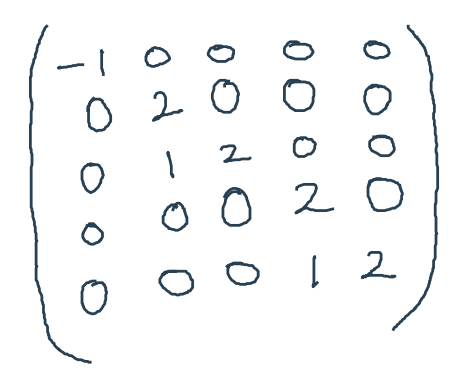 -1 0 0 0 0
0 2 0 0 0
0 1 2 0 0
0 0 0 2 0
0 0 0 1 2